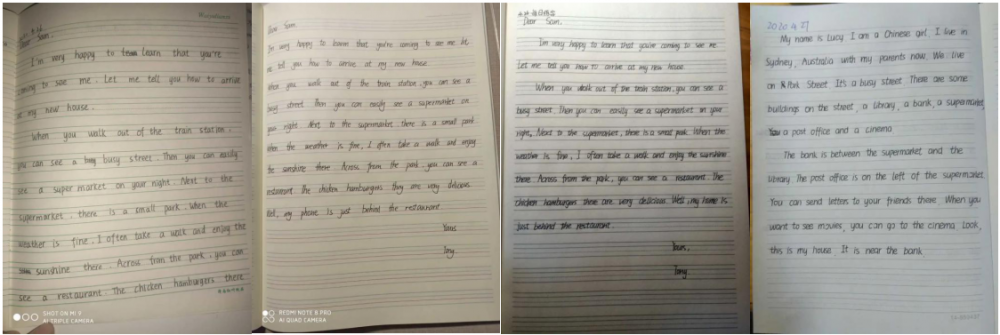 Dear Sam,
I'm very happy to learn that you're
coming to see me. Let me tell you how to arrive
at my new house.
When you walk out of the train station,
you can see a busy street. Then you can easily
see a super market on your right. Next to the
supermarket, there is a small park. When the
weather is fine, I often take a walk and enjoy the
sunshine there. Across from the park, you can
see a restaurant. The chicken hamburgers there
SHOT ON MI 9
AI TRIPLE CAMERA
Dear Sam,
I'm very happy to learn that you're coming to see me. Let
me tell you how to arrive at my new house.
When you walk out of the train station, you can see a
busy street. Then you can easily see a supermarket on
your right. Next to the supermarket, there is a small park.
When the weather is fine, I often take a walk and enjoy
the sunshine there. Across from the park, you can see a
restaurant. The chicken hamburgers they are very delicious.
my phone is just behind the restaurant.
Yours
Tony
REDMI NOTE 8 PRO
AI QUAD CAMERA
Dear Sam,
I'm very happy to learn that you're coming to see me.
Let me tell you how to arrive at my new house.
When you walk out of the train station, you can see a
busy street. Then you can easily see a supermarket on your
right. Next to the supermarket, there is a small park. When the
weather is fine, I often take a walk and enjoy the sunshine
there. Across from the park, you can see a restaurant. The
chicken hamburgers there are very delicious. Well, my home is
just behind the restaurant.
Yours,
Tony
2020 4 27
My name is Lucy. I am a Chinese girl. I live in
Sydney, Australia with my parents now. We live
on Park Street. It's a busy street. There are some
buildings on the street, a library, a bank, a supermarket,
a post office and a cinema.
The bank is between the supermarket and the
library. The post office is on the left of the supermarket.
You can send letters to your friends there. When you
want to see movies, you can go to the cinema. Look,
this is my house. It is near the bank.